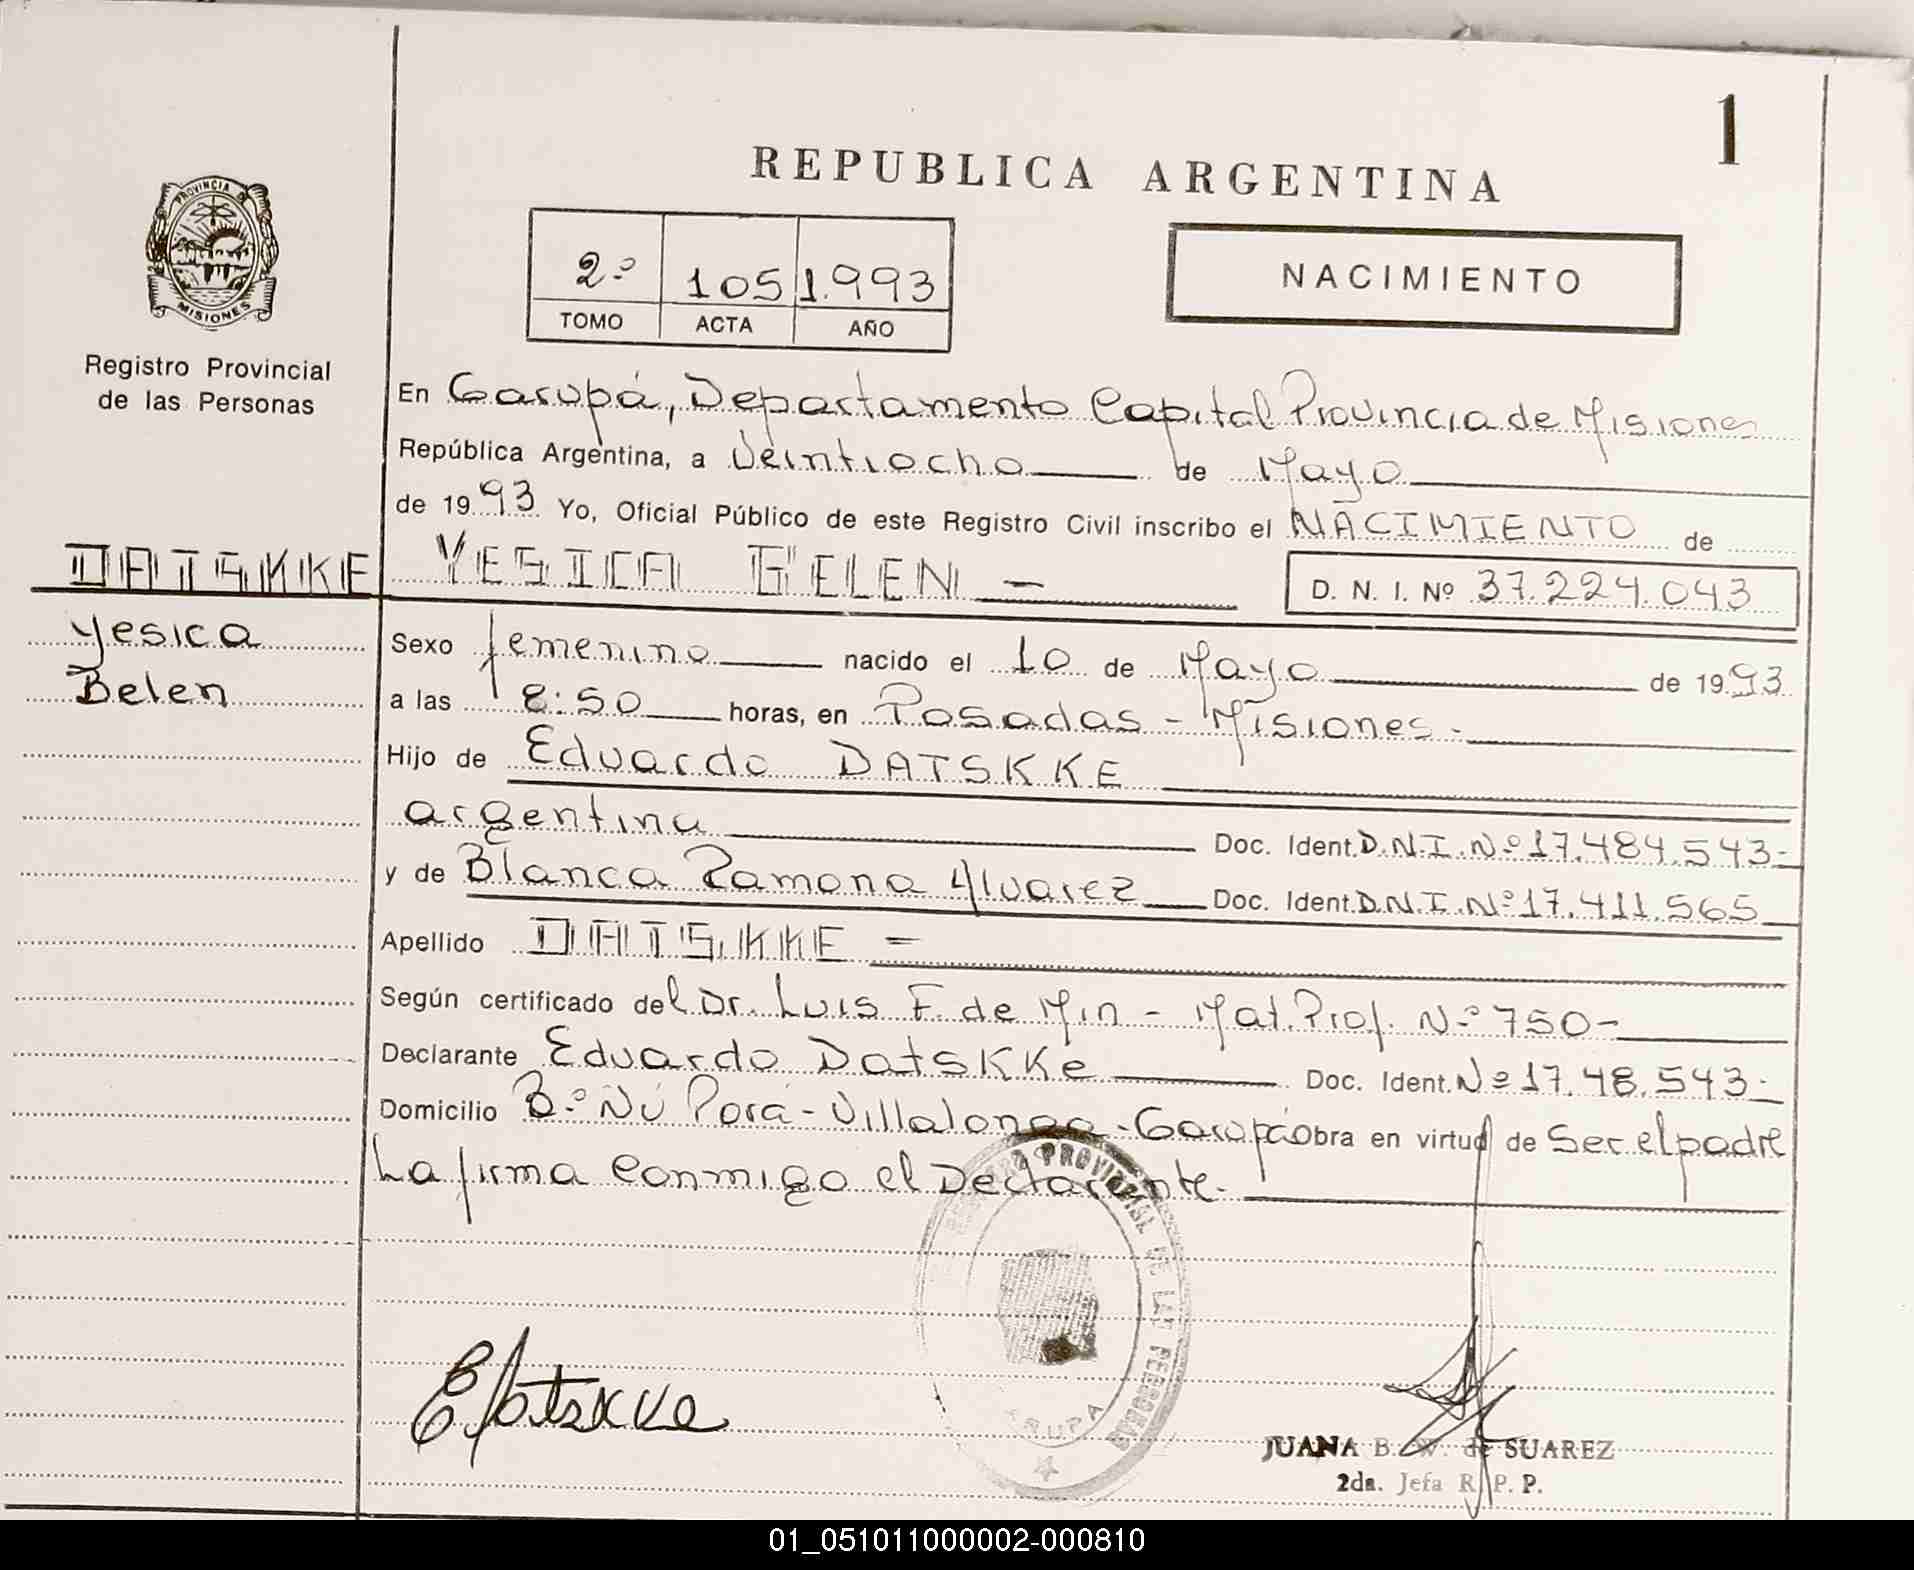 1
REPUBLICA ARGENTINA
PROVINCIA DE
MISIONES
Registro Provincial
de las Personas
2º 105 1.993
TOMO ACTA AÑO
NACIMIENTO
En Garupá, Departamento Capital Provincia de Misiones
República Argentina, a Veintiocho de Mayo
de 1993 Yo, Oficial Público de este Registro Civil inscribo el NACIMIENTO de
DATSKKE YESICA BELEN -
D. N. I. Nº 37.224.043
Yesica
Belen
Sexo femenino nacido el 10 de Mayo de 1993
a las 8:50 horas, en Posadas - Misiones -
Hijo de Eduardo DATSKKE
argentina Doc. Ident. D.N.I. Nº 17.484.543-
y de Blanca Ramona Alvarez Doc. Ident. D.N.I. Nº 17.411.565
Apellido DATSKKE =
Según certificado del Dr. Luis F. de Min - Mat. Prof. Nº 750-
Declarante Eduardo Datskke Doc. Ident. Nº 17.48.543-
Domicilio Bº Ñú Porá - Villalonga - Garupá Obra en virtud de Ser el padre
La firma conmigo el Declarante.
REGISTRO PROVINCIAL DE LAS PERSONAS
GARUPA
E Datskke
JUANA B. W. de SUAREZ
2da. Jefa R. P. P.
01_051011000002-000810